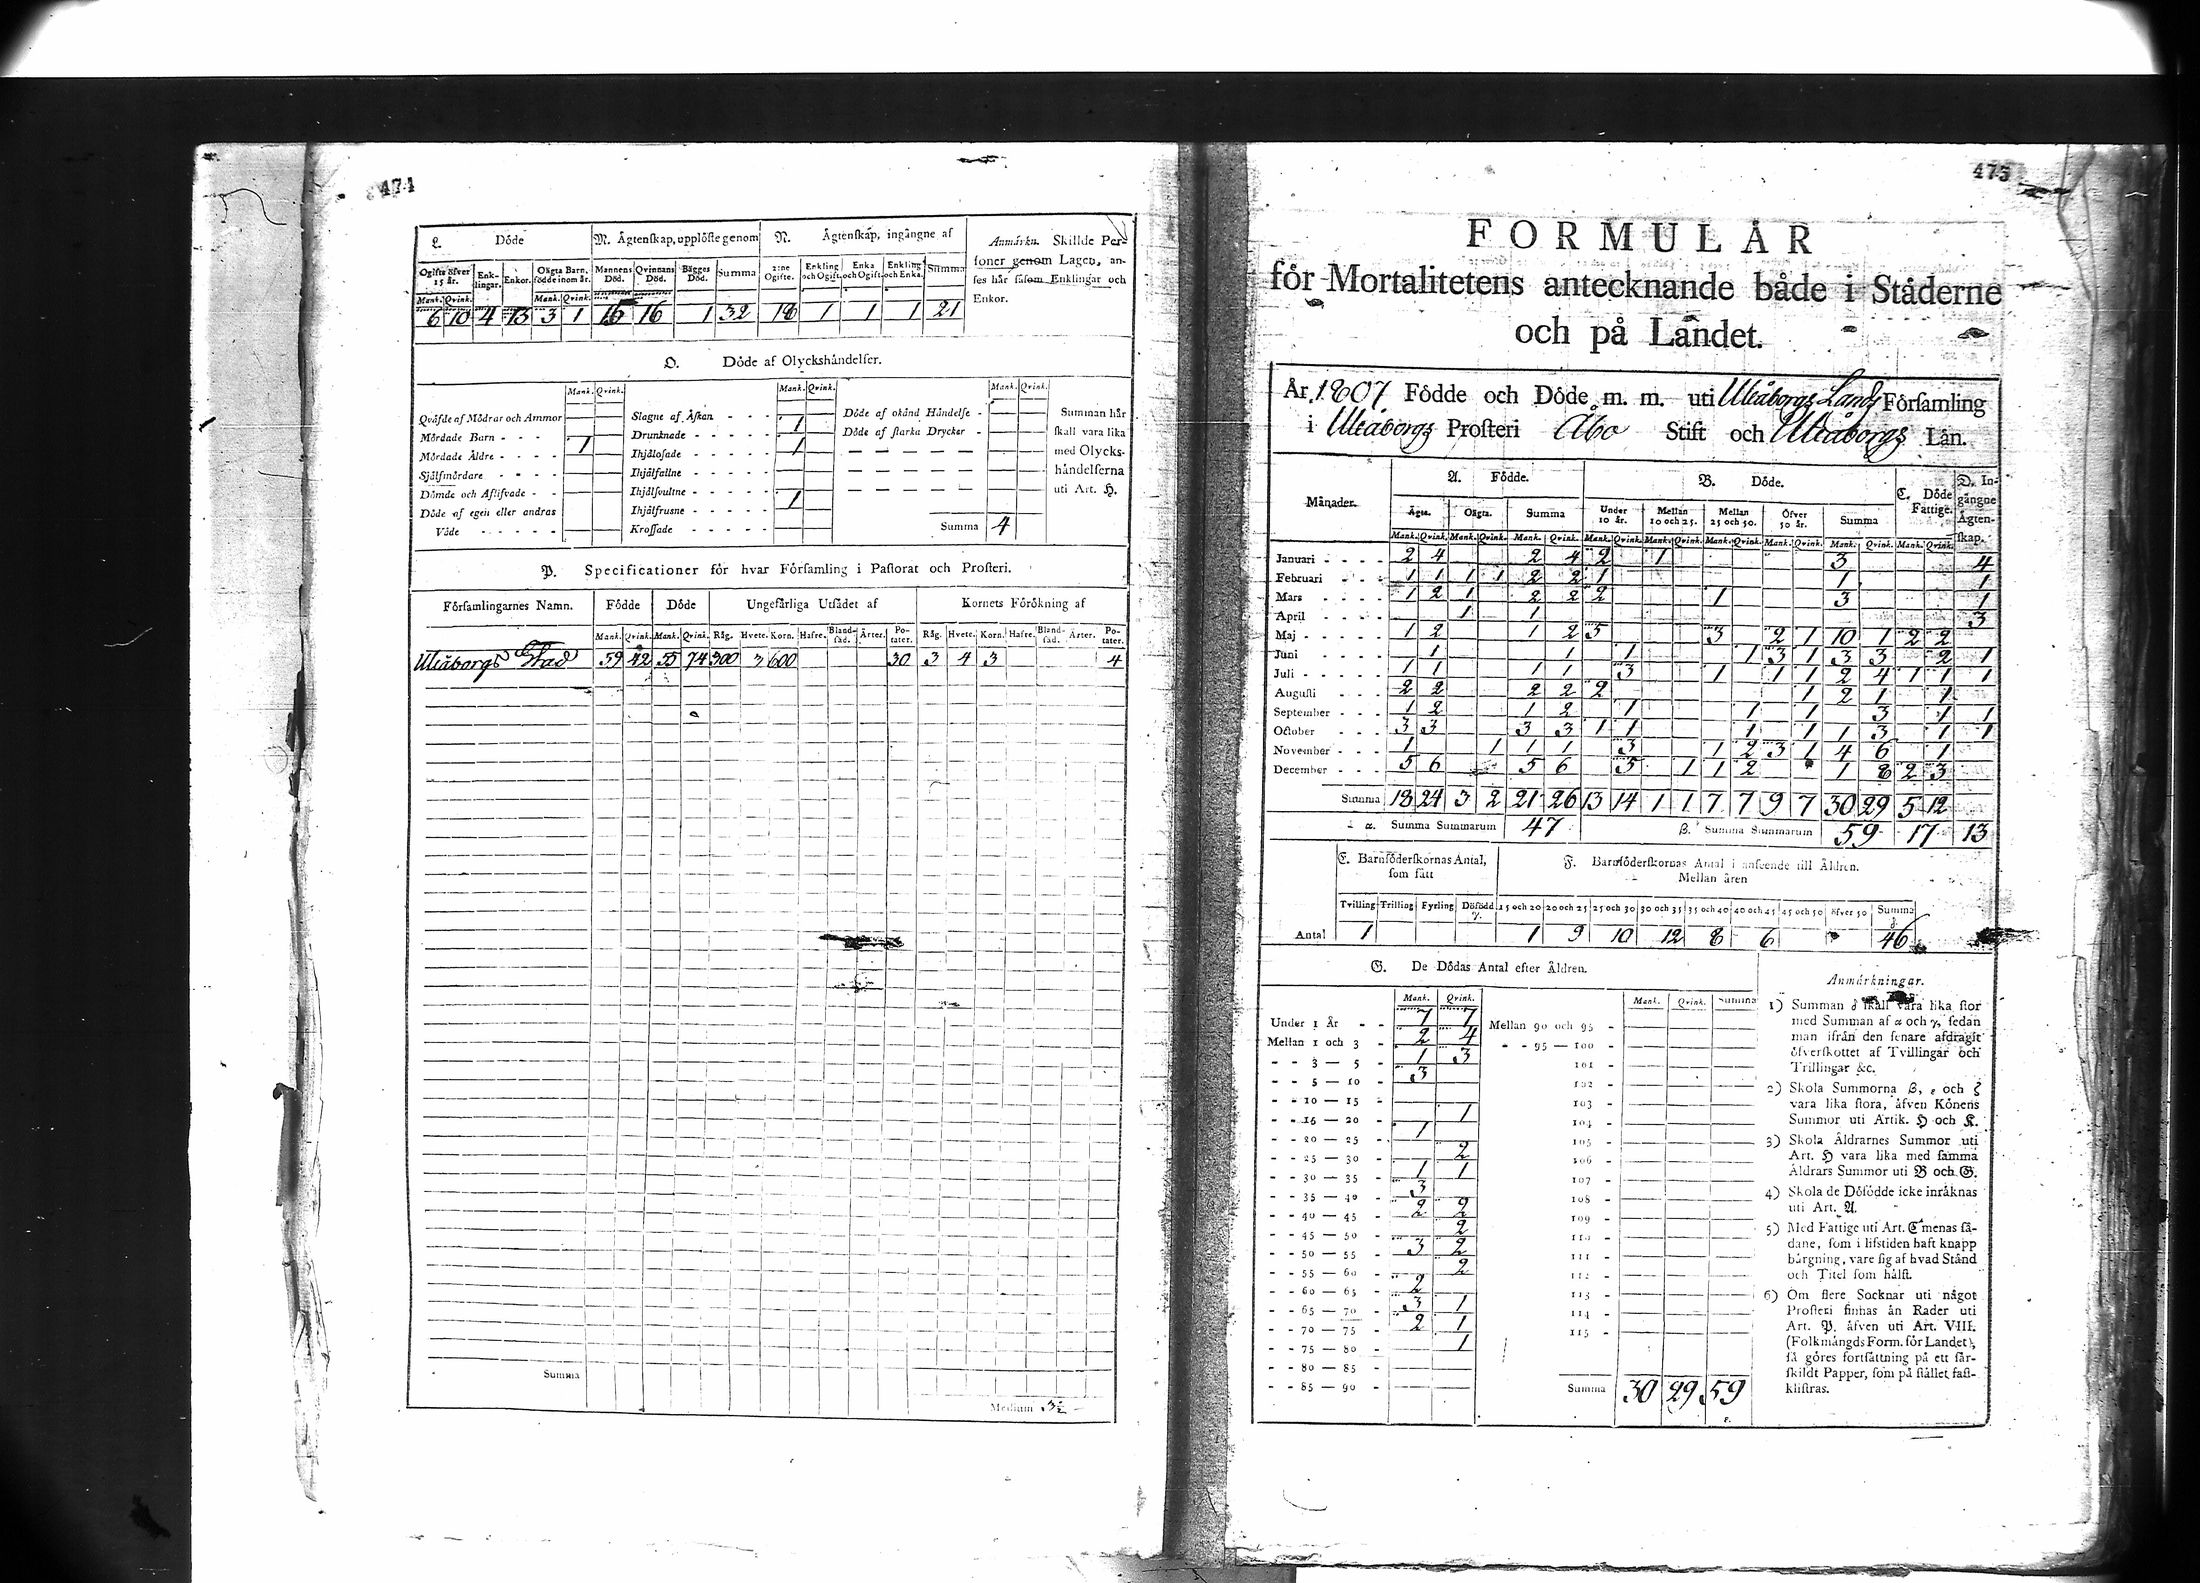 474
L. Döde
M. Ägtenskap, upplöste genom
N. Ägtenskap, ingångne af
Anmärkn. Skillde Per-
soner genom Lagen, an-
ses här såsom Enklingar och
Enkor.
Ogifte öfver 15 år. Enk-lingar. Enkor. Oägta Barn, födde inom år. Mannens Död. Qvinnans Död. Bägges Död. Summa 2:ne Ogifte. Enkling och Ogift. Enka och Ogift. Enkling och Enka. Summa
Mank. Qvink. Mank. Qvink.
6 10 4 13 3 1 15 16 1 32 18 1 1 1 21
O. Döde af Olyckshändelser.
Mank. Qvink. Mank. Qvink. Mank. Qvink.
Qväfde af Mödrar och Ammor
Mördade Barn - - - 1
Mördade Äldre - - - -
Självmördare - - - -
Dömde och Aflifvade - -
Döde af egen eller andras
Våde - - - - -
Slagne af Åskan - - - 1
Drunknade - - - - - 1
Ihjälosade - - - - -
Ihjälfallne - - - - -
Ihjälsvultne - - - - - 1
Ihjälfrusne - - - - -
Krossade - - - - -
Döde af okänd Händelse -
Döde af starka Drycker -
Summa 4
Summan här
skall vara lika
med Olycks-
händelserna
uti Art. H.
P. Specificationer för hvar Församling i Pastorat och Prosteri.
Församlingarnes Namn. Födde Döde Ungefärliga Utsädet af Kornets Förökning af
Mank. Qvink. Mank. Qvink. Råg. Hvete. Korn. Hafre. Bland-säd. Ärter. Po-tater. Råg. Hvete. Korn. Hafre. Bland-säd. Ärter. Po-tater.
Uleåborgs Stad 59 42 55 74 300 3 600 30 3 4 3 4
Summa
Medium 3½
475
FORMULÄR
för Mortalitetens antecknande både i Städerne
och på Landet.
År 1807 Födde och Döde m. m. uti Uleåborgs Lands Församling
i Uleåborgs Prosteri Åbo Stift och Uleåborgs Län.
Månader. A. Födde. B. Döde. C. Döde Fattige. D. In-gångne Ägten-skap.
Ägta. Oägta. Summa Under 10 år. Mellan 10 och 25. Mellan 25 och 50. Öfver 50 år. Summa
Mank. Qvink. Mank. Qvink. Mank. Qvink. Mank. Qvink. Mank. Qvink. Mank. Qvink. Mank. Qvink. Mank. Qvink. Mank. Qvink.
Januari - - - - 2 4 2 4 2 1 3 4
Februari - - - 1 1 1 1 2 2 1 1 1
Mars - - - - 1 2 1 2 2 2 1 3 1
April - - - - 1 1 3
Maj - - - - - 1 2 1 2 5 3 2 1 10 1 2 2
Juni - - - - 1 1 1 1 3 1 3 3 2 1
Juli - - - - - 1 1 1 1 3 1 1 1 2 4 1 1 1
Augusti - - - 2 2 2 2 2 1 2 1 1
September - - - 1 2 1 2 1 1 1 3 1 1
October - - - 3 3 3 3 1 1 1 1 1 3 1 1
November - - - 1 1 1 1 3 1 2 3 1 4 6 1
December - - - 5 6 5 6 5 1 1 2 1 8 2 3
Summa 18 24 3 2 21 26 13 14 1 1 7 7 9 7 30 29 5 12
α. Summa Summarum 47 β. Summa Summarum 59 17 13
E. Barnföderskornas Antal, som fått
F. Barnföderskornas Antal i anseende till Åldren.
Mellan åren
Tvilling Trilling Fyrling Dödfödd γ. 15 och 20 20 och 25 25 och 30 30 och 35 35 och 40 40 och 45 45 och 50 öfver 50 Summa δ
Antal 1 1 9 10 12 8 6 46
G. De Dödas Antal efter Åldren.
Mank. Qvink. Mank. Qvink. Summa
Under 1 År - - 7 7
Mellan 1 och 3 - 2 4
- - 3 — 5 - 1 3
- - 5 — 10 - 3
- - 10 — 15 -
- - 15 — 20 - 1
- - 20 — 25 - 1
- - 25 — 30 - 2
- - 30 — 35 - 1 1
- - 35 — 40 - 3
- - 40 — 45 - 2 2
- - 45 — 50 - 2
- - 50 — 55 - 3 2
- - 55 — 60 - 2
- - 60 — 65 - 2
- - 65 — 70 - 3 1
- - 70 — 75 - 2 1
- - 75 — 80 - 1
- - 80 — 85 -
- - 85 — 90 -
Mellan 90 och 95 -
- - 95 — 100 -
101 -
102 -
103 -
104 -
105 -
106 -
107 -
108 -
109 -
110 -
111 -
112 -
113 -
114 -
115 -
Summa 30 29 59
ε.
Anmärkningar.
1) Summan δ skall vara lika stor
med Summan af α och γ, sedan
man ifrån den senare afdragit
öfverskottet af Tvillingar och
Trillingar &c.
2) Skola Summorna β, ε och ζ
vara lika stora, äfven Könens
Summor uti Artik. H och K.
3) Skola Åldrarnes Summor uti
Art. H vara lika med samma
Åldrars Summor uti B och G.
4) Skola de Döfödde icke inräknas
uti Art. A.
5) Med Fattige uti Art. C menas så-
dane, som i lifstiden haft knapp
bärgning, vare sig af hvad Stånd
och Titel som hälst.
6) Om flere Socknar uti något
Prosteri finnas än Rader uti
Art. P, äfven uti Art. VIII.
(Folkmängds Form. för Landet),
så göres fortsättning på ett sär-
skildt Papper, som på stället fast-
klistras.